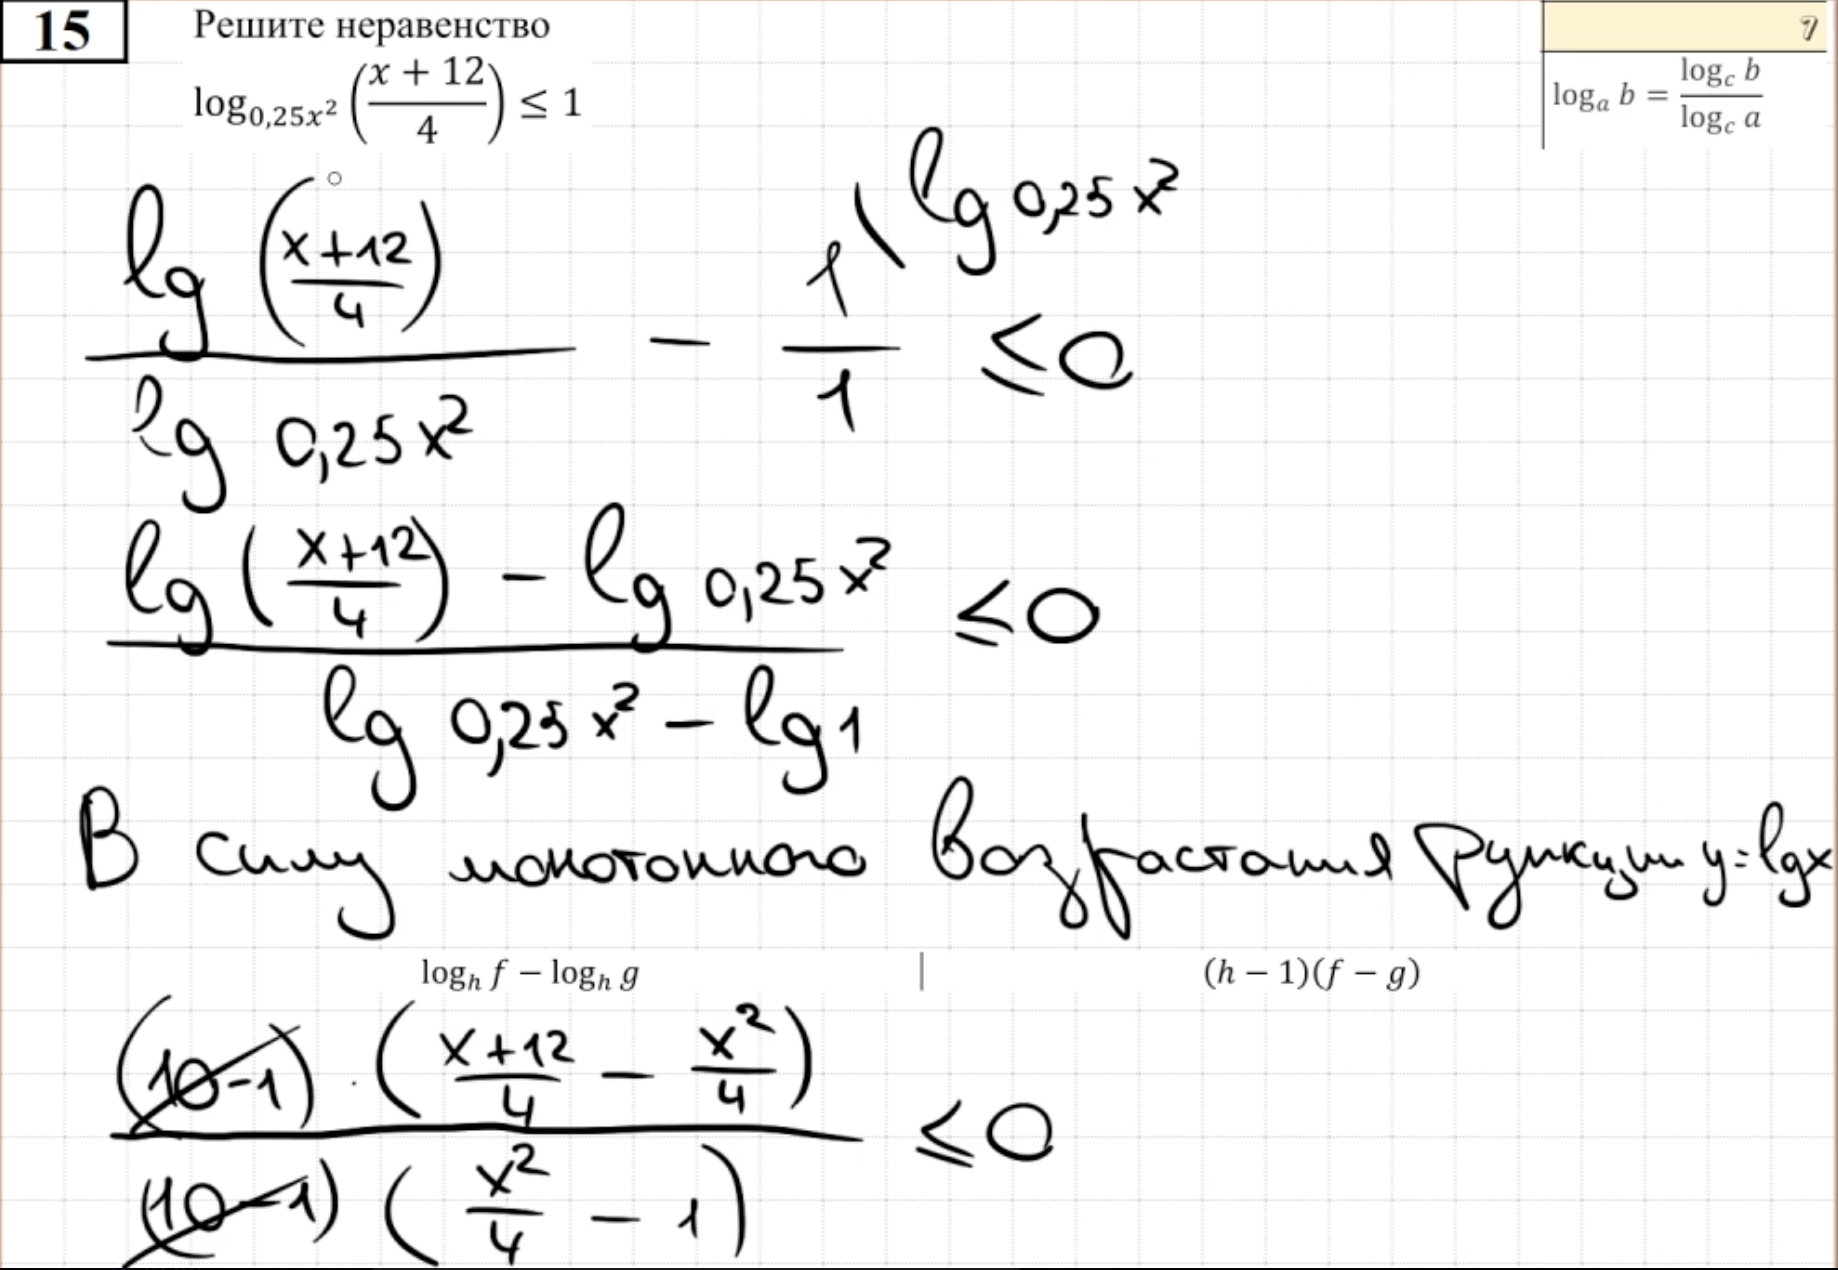 15
Решите неравенство
log_{0,25x²} ((x + 12)/4) ≤ 1
log_a b = (log_c b)/(log_c a)
lg ((x+12)/4) / lg 0,25x² − 1/1 \ lg 0,25x² ≤ 0
(lg ((x+12)/4) − lg 0,25x²) / (lg 0,25x² − lg 1) ≤ 0
В силу монотонного возрастания функции y=lgx
log_h f − log_h g | (h − 1)(f − g)
((10−1) · ((x+12)/4 − x²/4)) / ((10−1) (x²/4 − 1)) ≤ 0